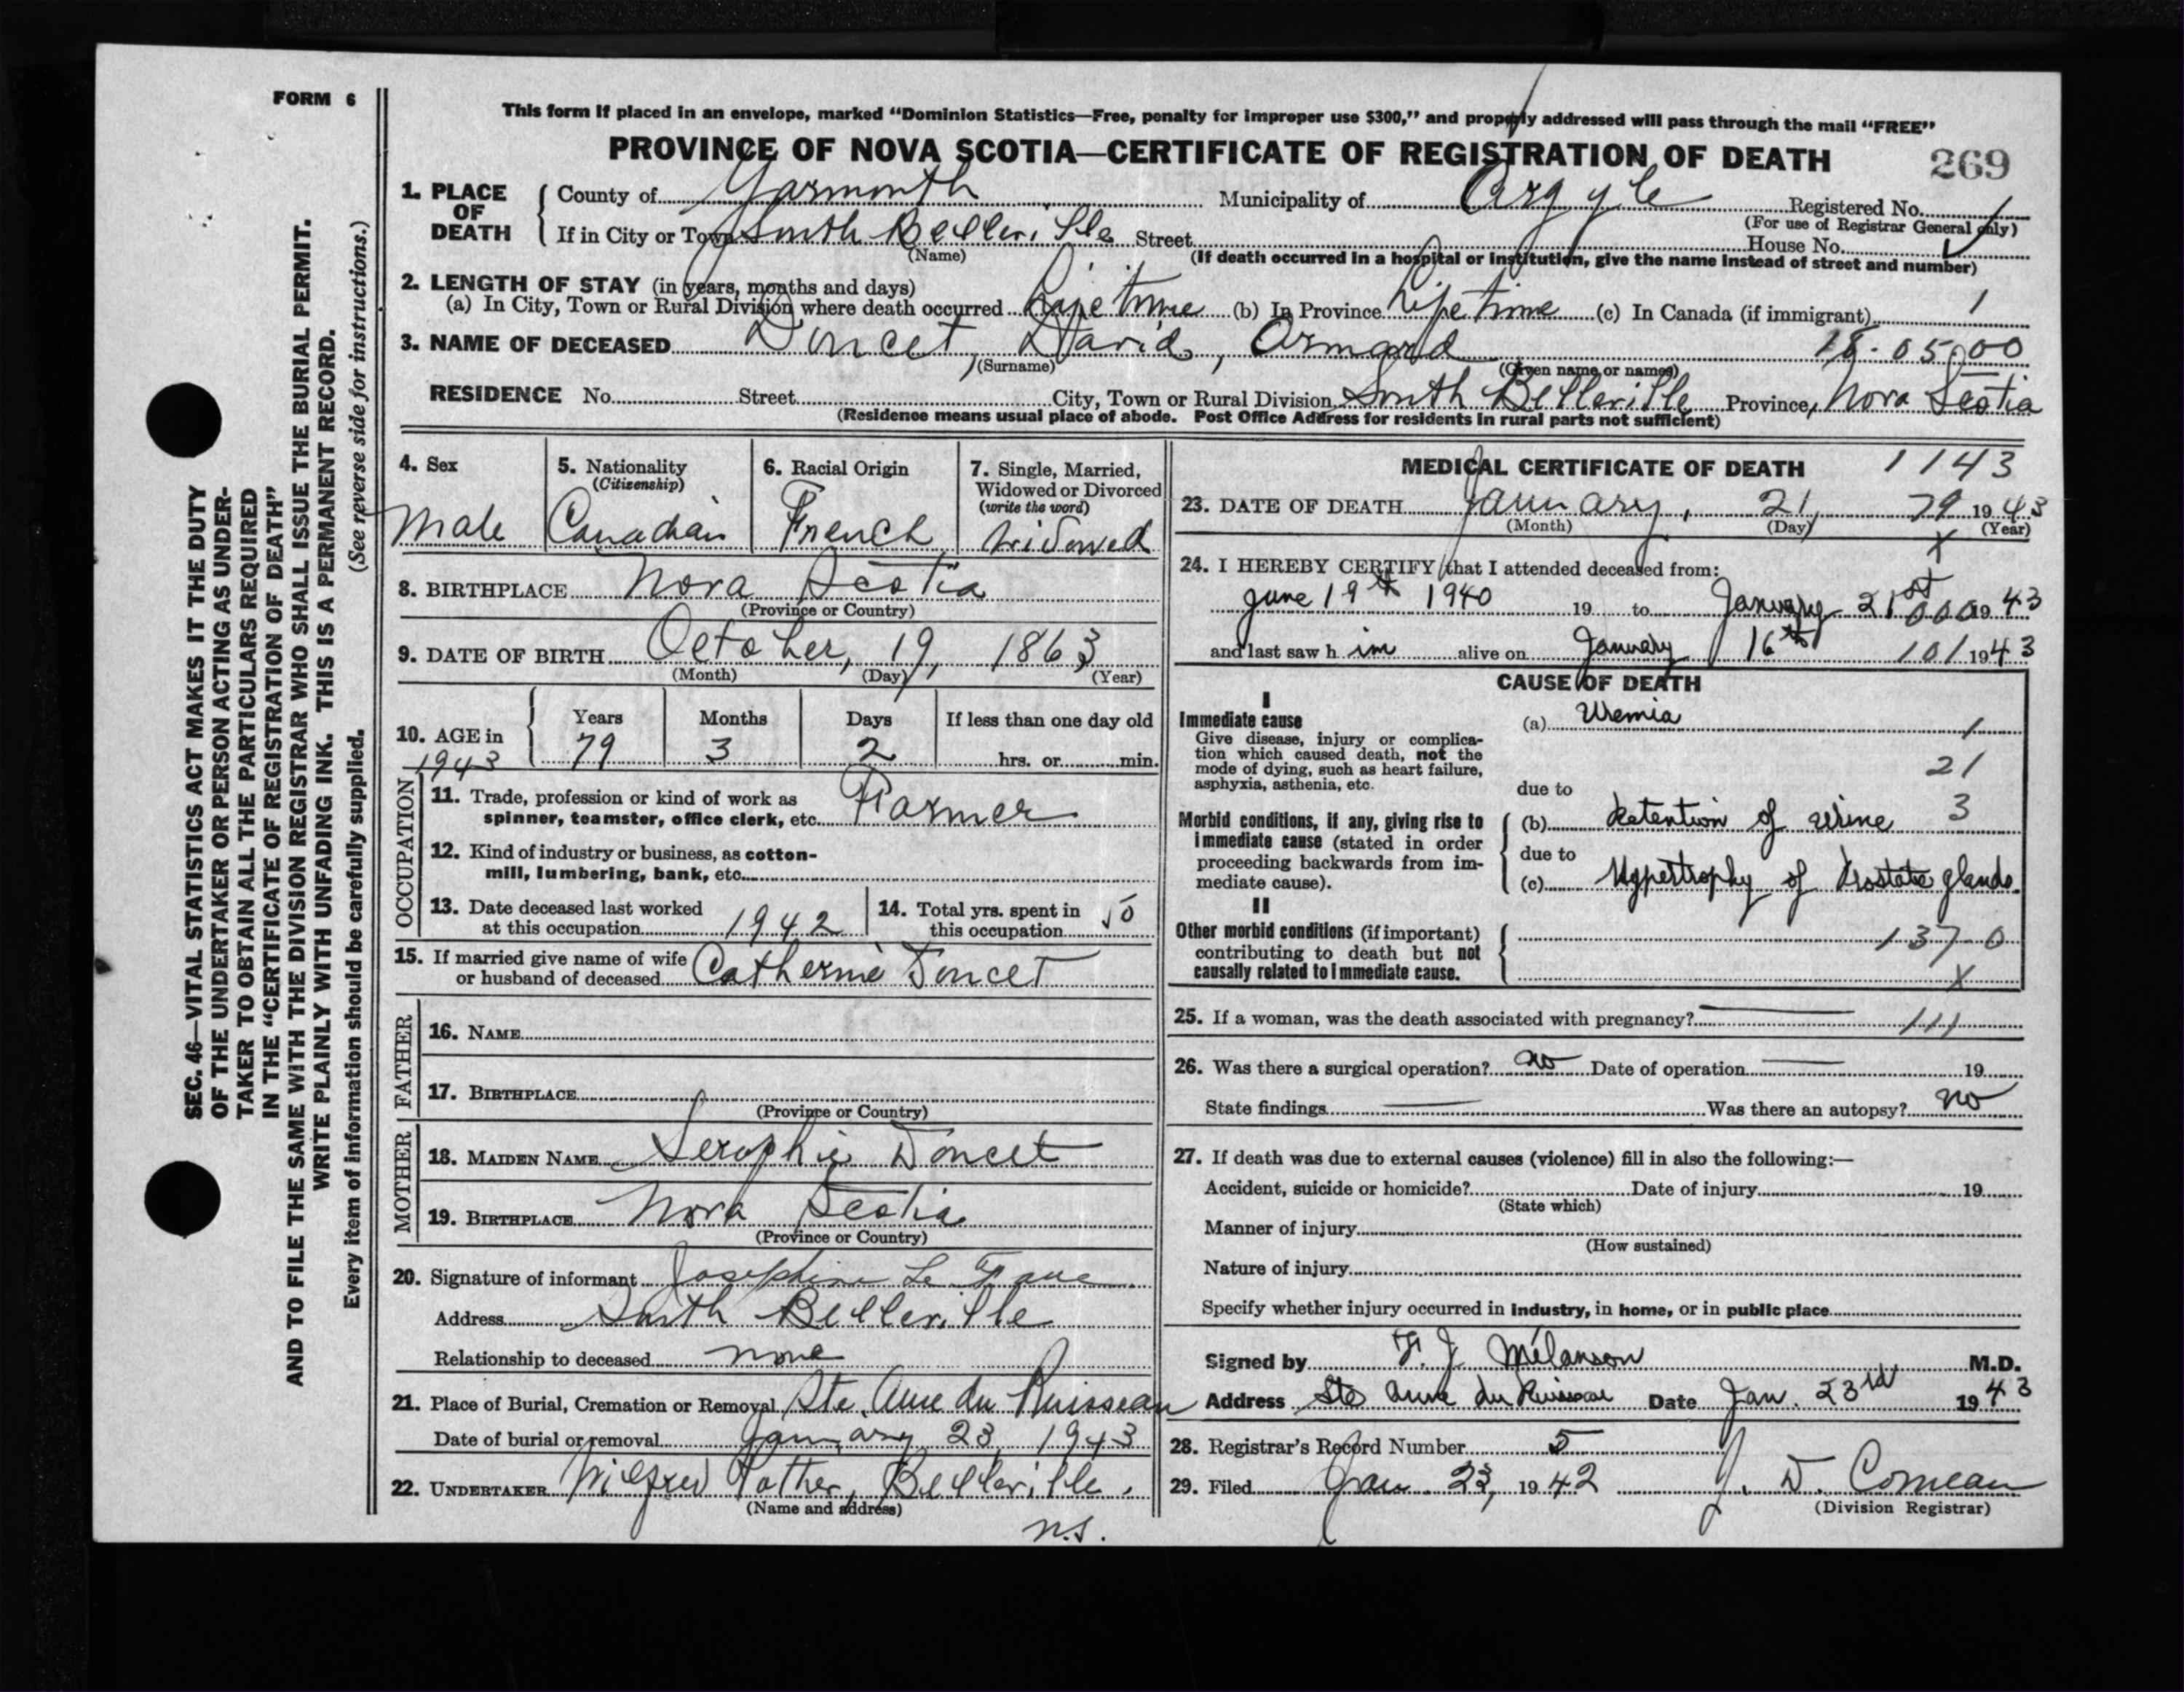 FORM 6
This form if placed in an envelope, marked "Dominion Statistics—Free, penalty for improper use $300," and properly addressed will pass through the mail "FREE"
PROVINCE OF NOVA SCOTIA—CERTIFICATE OF REGISTRATION OF DEATH 269
1. PLACE OF DEATH
County of Yarmouth Municipality of Argyle Registered No.
(For use of Registrar General only)
If in City or Town South Belleville Street House No.
(Name) (If death occurred in a hospital or institution, give the name instead of street and number)
2. LENGTH OF STAY (in years, months and days)
(a) In City, Town or Rural Division where death occurred Lifetime (b) In Province Lifetime (c) In Canada (if immigrant) 1
3. NAME OF DECEASED Doucet, David, Armard 18-05-00
(Surname) (Given name or names)
RESIDENCE No. Street City, Town or Rural Division South Belleville Province, Nova Scotia
(Residence means usual place of abode. Post Office Address for residents in rural parts not sufficient)
4. Sex
Male
5. Nationality
(Citizenship)
Canadian
6. Racial Origin
French
7. Single, Married,
Widowed or Divorced
(write the word)
Widowed
8. BIRTHPLACE Nova Scotia
(Province or Country)
9. DATE OF BIRTH October, 19, 1863
(Month) (Day) (Year)
10. AGE in 1943
Years Months Days If less than one day old
79 3 2 hrs. or min.
OCCUPATION
11. Trade, profession or kind of work as
spinner, teamster, office clerk, etc. Farmer
12. Kind of industry or business, as cotton-
mill, lumbering, bank, etc.
13. Date deceased last worked
at this occupation 1942
14. Total yrs. spent in
this occupation 50
15. If married give name of wife
or husband of deceased Catherine Doucet
FATHER
16. NAME
17. BIRTHPLACE
(Province or Country)
MOTHER
18. MAIDEN NAME Seraphie Doucet
19. BIRTHPLACE Nova Scotia
(Province or Country)
20. Signature of informant Josephine Le
Address South Belleville
Relationship to deceased none
21. Place of Burial, Cremation or Removal Ste. Anne du Ruisseau
Date of burial or removal January 23, 1943
22. UNDERTAKER Wilfred Pothier, Belleville,
(Name and address)
N.S.
MEDICAL CERTIFICATE OF DEATH 1143
23. DATE OF DEATH January, 21, 79 1943
(Month) (Day) (Year)
X
24. I HEREBY CERTIFY that I attended deceased from:
June 19th 1940 19 to January 21st 000 1943
and last saw h im alive on January 16th 101 1943
CAUSE OF DEATH
I
Immediate cause
Give disease, injury or complica-
tion which caused death, not the
mode of dying, such as heart failure,
asphyxia, asthenia, etc.
(a) Uremia 1
21
due to
Morbid conditions, if any, giving rise to
immediate cause (stated in order
proceeding backwards from im-
mediate cause).
(b) Retention of urine 3
due to
(c) Hypertrophy of Prostate glands.
II
Other morbid conditions (if important)
contributing to death but not
causally related to immediate cause.
137-0
X
25. If a woman, was the death associated with pregnancy? — 111
26. Was there a surgical operation? no Date of operation — 19
State findings — Was there an autopsy? no
27. If death was due to external causes (violence) fill in also the following:—
Accident, suicide or homicide? Date of injury 19
(State which)
Manner of injury
(How sustained)
Nature of injury
Specify whether injury occurred in industry, in home, or in public place
Signed by F. J. Mélanson M.D.
Address Ste Anne du Ruisseau Date Jan. 23rd 1943
28. Registrar's Record Number 5
29. Filed Jan. 23, 1942 J. D. Comeau
(Division Registrar)
SEC. 46—VITAL STATISTICS ACT MAKES IT THE DUTY
OF THE UNDERTAKER OR PERSON ACTING AS UNDER-
TAKER TO OBTAIN ALL THE PARTICULARS REQUIRED
IN THE "CERTIFICATE OF REGISTRATION OF DEATH"
AND TO FILE THE SAME WITH THE DIVISION REGISTRAR WHO SHALL ISSUE THE BURIAL PERMIT.
WRITE PLAINLY WITH UNFADING INK. THIS IS A PERMANENT RECORD.
Every item of information should be carefully supplied. (See reverse side for instructions.)